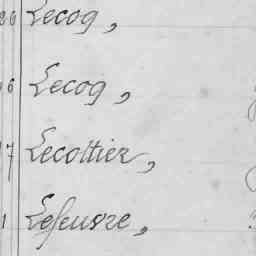 26 Lecoq,
6 Lecoq,
7 Lecottier,
1 Lefeuvre,